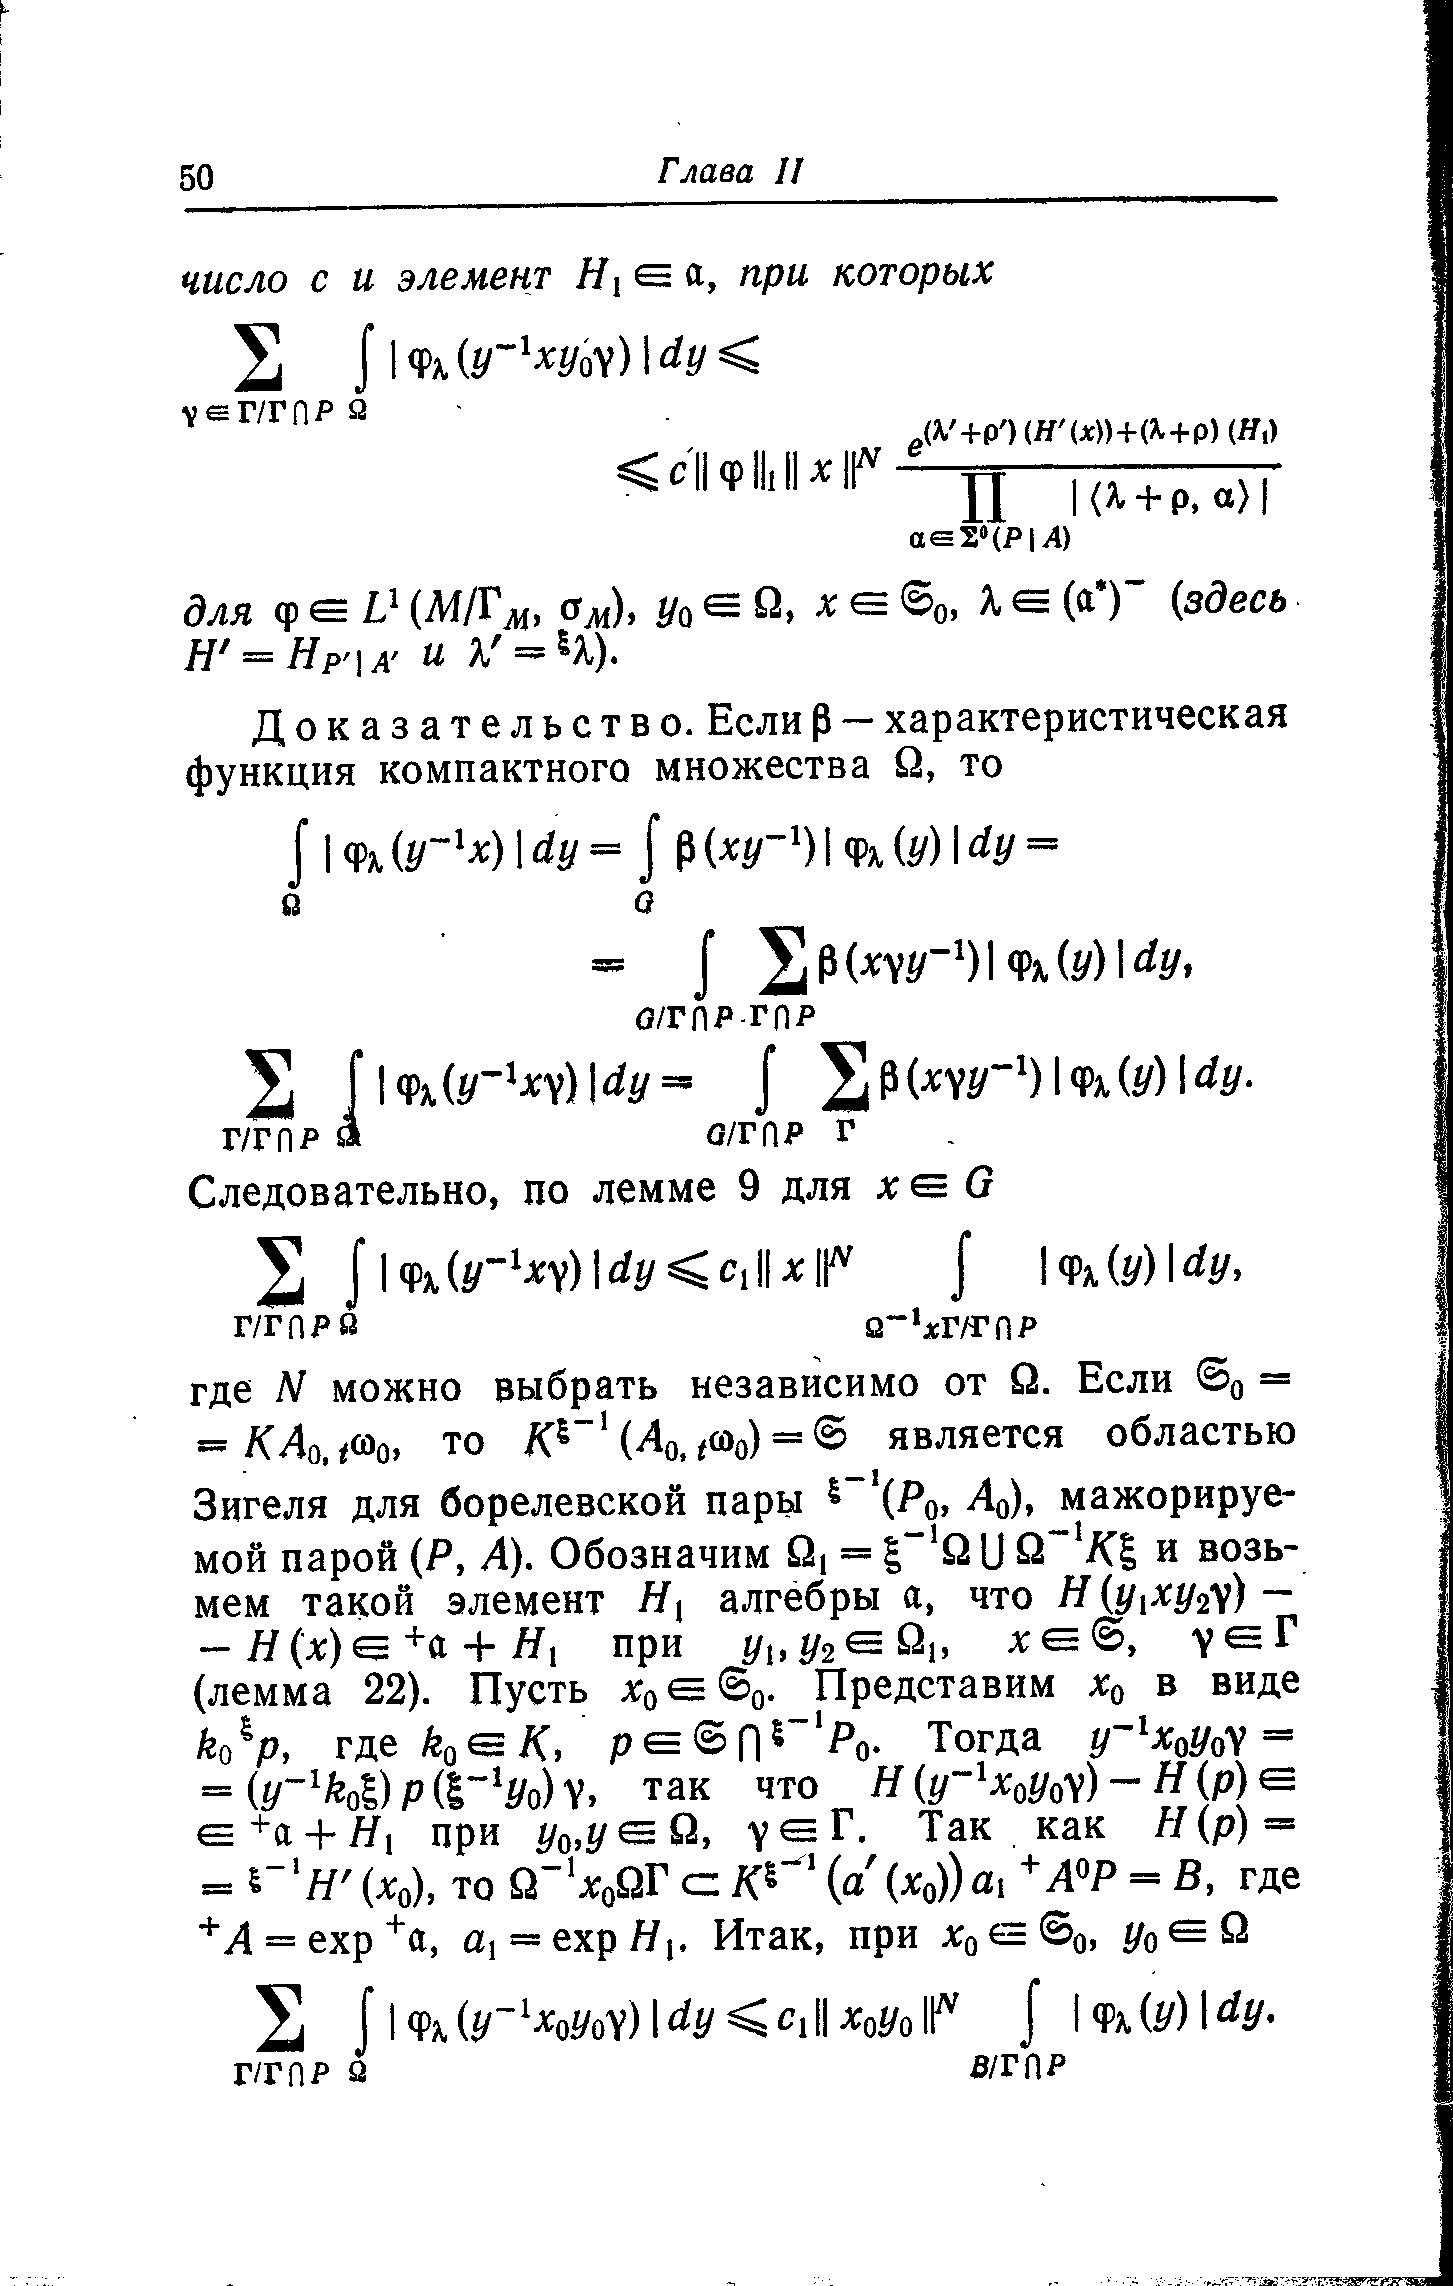 50 Глава II
число c и элемент H₁ ∈ 𝔞, при которых
∑ ∫ | φ_λ (y⁻¹xy₀γ) | dy ⩽
γ ∈ Γ/Γ ∩ P Ω
⩽ c ‖ φ ‖₁ ‖ x ‖^N e^{(λ′+ρ′) (H′(x))+(λ+ρ) (H₁)} / ∏_{α ∈ Σ⁰(P | A)} | ⟨λ + ρ, α⟩ |
для φ ∈ L¹ (M/Γ_M, σ_M), y₀ ∈ Ω, x ∈ 𝔖₀, λ ∈ (𝔞*)⁻ (здесь
H′ = H_{P′ | A′} и λ′ = ^ξλ).
Доказательство. Если β — характеристическая
функция компактного множества Ω, то
∫_Ω | φ_λ (y⁻¹x) | dy = ∫_G β (xy⁻¹) | φ_λ (y) | dy =
= ∫_{G/Γ ∩ P} ∑_{Γ ∩ P} β (xγy⁻¹) | φ_λ (y) | dy,
∑_{Γ/Γ ∩ P} ∫_Ω | φ_λ (y⁻¹xγ) | dy = ∫_{G/Γ ∩ P} ∑_Γ β (xγy⁻¹) | φ_λ (y) | dy.
Следовательно, по лемме 9 для x ∈ G
∑_{Γ/Γ ∩ P} ∫_Ω | φ_λ (y⁻¹xγ) | dy ⩽ c₁ ‖ x ‖^N ∫_{Ω⁻¹xΓ/Γ ∩ P} | φ_λ (y) | dy,
где N можно выбрать независимо от Ω. Если 𝔖₀ =
= KA_{0, t}ω₀, то K^{ξ⁻¹} (A_{0, t}ω₀) = 𝔖 является областью
Зигеля для борелевской пары ^{ξ⁻¹}(P₀, A₀), мажорируе-
мой парой (P, A). Обозначим Ω₁ = ξ⁻¹Ω ∪ Ω⁻¹Kξ и возь-
мем такой элемент H₁ алгебры 𝔞, что H (y₁xy₂γ) —
— H (x) ∈ ⁺𝔞 + H₁ при y₁, y₂ ∈ Ω₁, x ∈ 𝔖, γ ∈ Γ
(лемма 22). Пусть x₀ ∈ 𝔖₀. Представим x₀ в виде
k₀ ^ξp, где k₀ ∈ K, p ∈ 𝔖 ∩ ^{ξ⁻¹}P₀. Тогда y⁻¹x₀y₀γ =
= (y⁻¹k₀ξ) p (ξ⁻¹y₀) γ, так что H (y⁻¹x₀y₀γ) — H (p) ∈
∈ ⁺𝔞 + H₁ при y₀, y ∈ Ω, γ ∈ Γ. Так как H (p) =
= ^{ξ⁻¹}H′ (x₀), то Ω⁻¹x₀ΩΓ ⊂ K^{ξ⁻¹} (a′ (x₀)) a₁ ⁺A⁰P = B, где
⁺A = exp ⁺𝔞, a₁ = exp H₁. Итак, при x₀ ∈ 𝔖₀, y₀ ∈ Ω
∑_{Γ/Γ ∩ P} ∫_Ω | φ_λ (y⁻¹x₀y₀γ) | dy ⩽ c₁ ‖ x₀y₀ ‖^N ∫_{B/Γ ∩ P} | φ_λ (y) | dy.